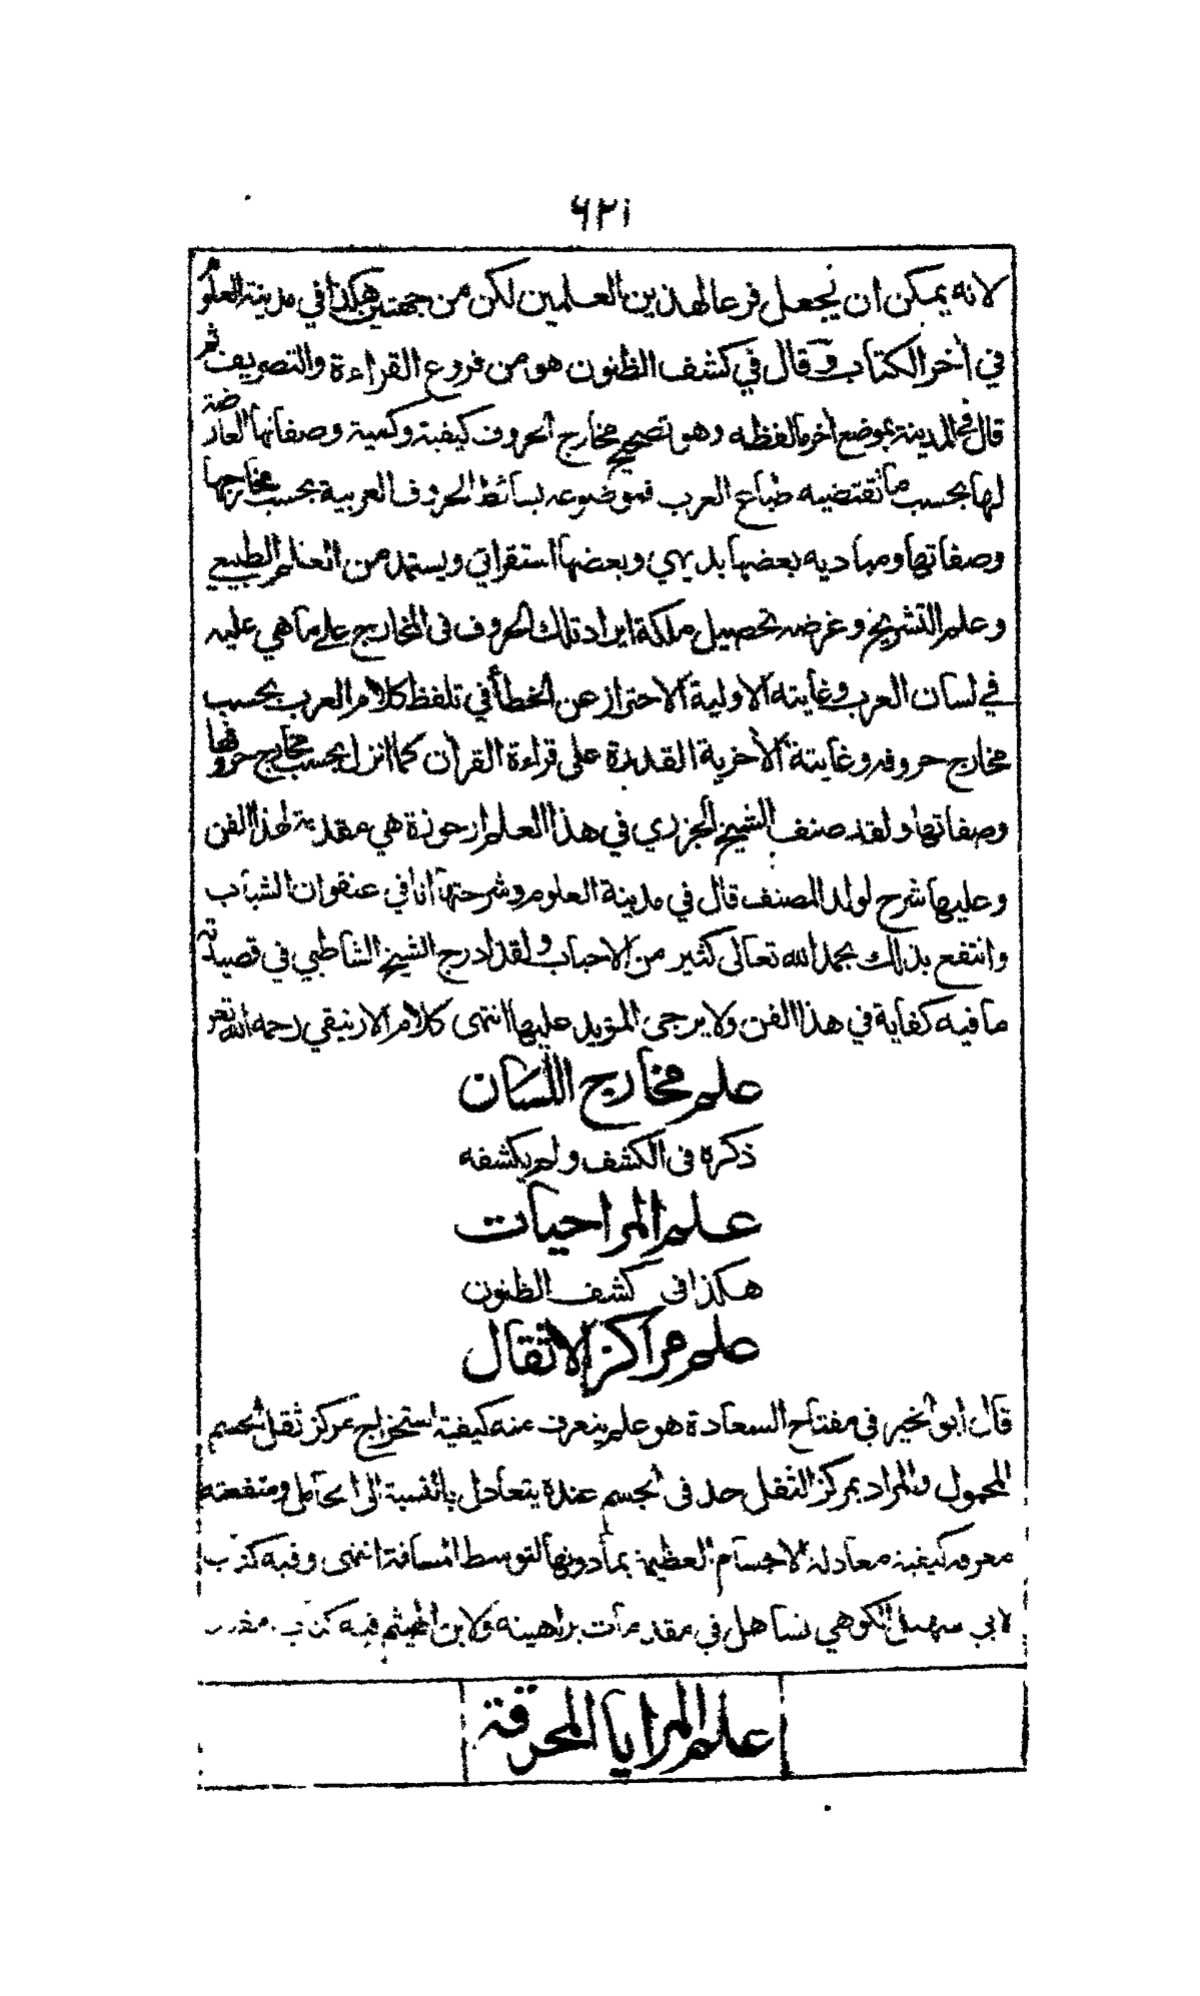 ٦٢١
لانه يمكن ان يجعل فرعا لهذين العلمين لكن من جهتين هكذا في مدينة العلوم
في أخر الكتاب وقال في كشف الظنون هو من فروع القراءة والتصريف ثم
قال في المدينة بموضع أخر ما لفظه وهو تصحيح مخارج الحروف كيفية وكمية وصفاتها العارضة
لها بحسب ما تقتضيه طباع العرب فموضوعه بسائط الحروف العربية بحسب مخارجها
وصفاتها ومباديه بعضها بديهي وبعضها استقرائي ويستمد من العلم الطبيعي
وعلم التشريح وغرضه تحصيل ملكة ايراد تلك الحروف في المخارج على ما هي عليه
في لسان العرب وغايته الاولية الاحتراز عن الخطأ في تلفظ كلام العرب بحسب
مخارج حروفه وغايتة الأخرية القدرة على قراءة القرأن كما انزل بحسب مخارج حروفها
وصفاتها ولقد صنف الشيخ الجزري في هذا العلم ارجوزة هي مقدمة لهذا الفن
وعليها شرح لولد المصنف قال في مدينة العلوم وشرحتها انا في عنفوان الشباب
وانتفع بذلك بحمد الله تعالى كثير من الاحباب ولقد ادرج الشيخ الشاطبي في قصيدته
ما فيه كفاية في هذا الفن ولا يرجى المزيد عليها انتهى كلام الارنيقي رحمه الله تعر
علم مخارج اللسان
ذكره في الكشف ولم يكشفه
علم المراحيات
هكذا في كشف الظنون
علم مراكز الاثقال
قال ابو الخير في مفتاح السعادة هو علم يتعرف منه كيفية استخراج مركز ثقل الجسم
المحمول والمراد بمركز الثقل حد في الجسم عنده يتعادل بالنسبة الى الحامل ومنفعته
معرفة كيفية معادلة الاجسام العظيمة بما دونها لتوسط المسافة انتهى وفيه كتاب
لابي سهل الكوهي تساهل في مقدمات براهينه ولابن الهيثم فيه كتاب
علم المرايا المحرقة